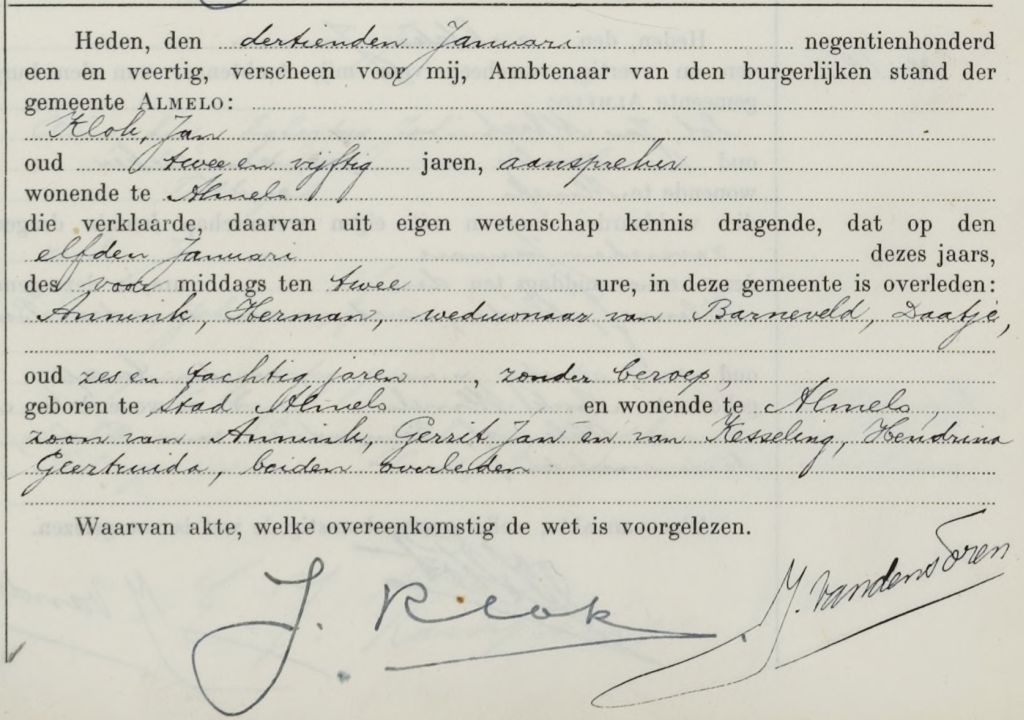 Heden, den dertienden Januari negentienhonderd
een en veertig, verscheen voor mij, Ambtenaar van den burgerlijken stand der
gemeente ALMELO:
Klok, Jan
oud twee en vijftig jaren, aanspreker
wonende te Almelo
die verklaarde, daarvan uit eigen wetenschap kennis dragende, dat op den
elfden Januari dezes jaars,
des voor middags ten twee ure, in deze gemeente is overleden:
Annink, Herman, weduwnaar van Barneveld, Daatje,
oud zes en tachtig jaren, zonder beroep,
geboren te Stad Almelo en wonende te Almelo,
zoon van Annink, Gerrit Jan en van Kesseling, Hendrina
Geertruida, beiden overleden
Waarvan akte, welke overeenkomstig de wet is voorgelezen.
J. Klok